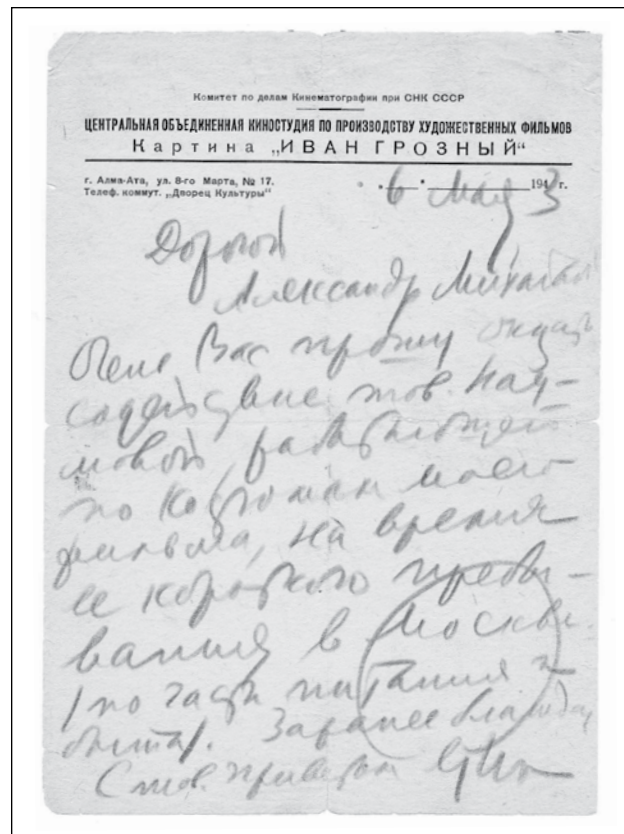 Комитет по делам Кинематографии при СНК СССР
ЦЕНТРАЛЬНАЯ ОБЪЕДИНЕННАЯ КИНОСТУДИЯ ПО ПРОИЗВОДСТВУ ХУДОЖЕСТВЕННЫХ ФИЛЬМОВ
Картина „ИВАН ГРОЗНЫЙ“
г. Алма-Ата, ул. 8-го Марта, № 17.
Телеф. коммут. „Дворец Культуры“
6 Мая 1943 г.
Дорогой
Александр
Очень Вас прошу оказать
содействие тов. Нау-
мовой, работающей
по костюмам моего
фильма, на время
ее короткого пребы-
вания в Москве
(по части питания и
быта). Заранее
С тов. приветом